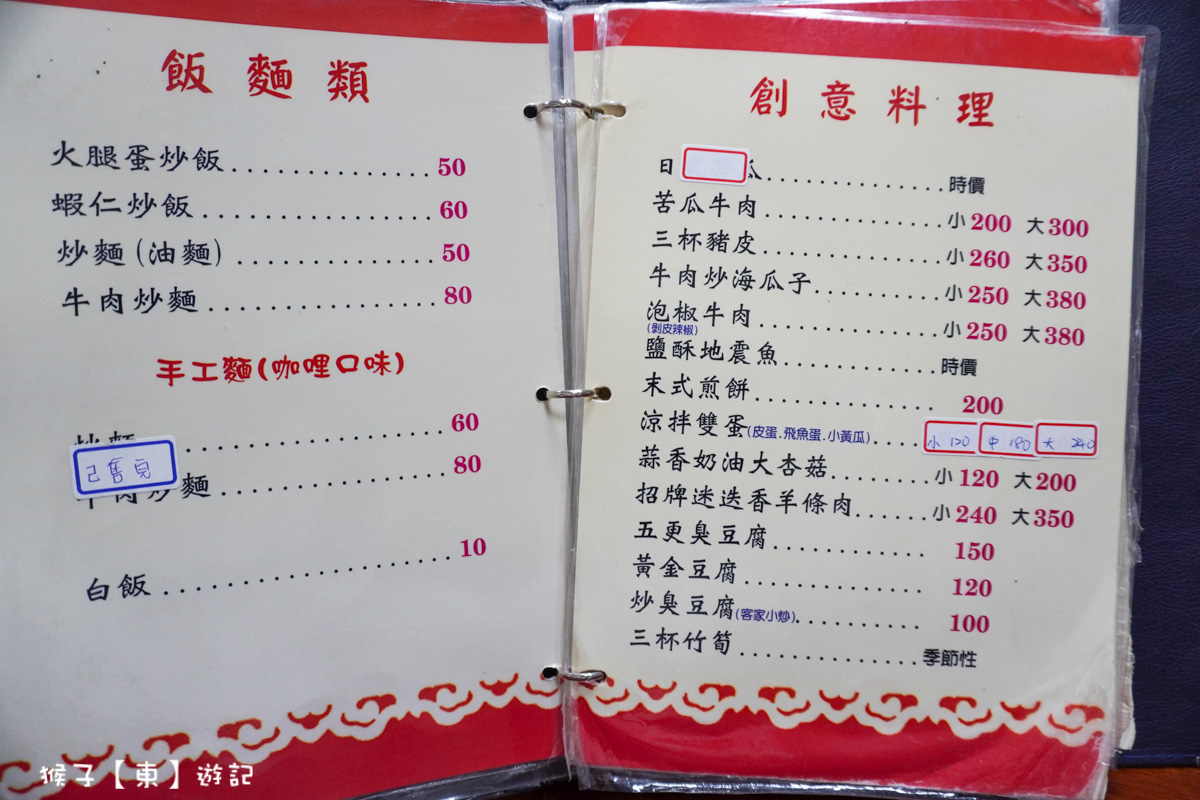 飯麵類
火腿蛋炒飯 50
蝦仁炒飯 60
炒麵(油麵) 50
牛肉炒麵 80
手工麵(咖哩口味)
炒麵 60
已售完
牛肉炒麵 80
白飯 10
創意料理
日 瓜 時價
苦瓜牛肉 小200 大300
三杯豬皮 小260 大350
牛肉炒海瓜子 小250 大380
泡椒牛肉 小250 大380
(剝皮辣椒)
鹽酥地震魚 時價
末式煎餅 200
涼拌雙蛋(皮蛋.飛魚蛋.小黃瓜) 小120 中180 大240
蒜香奶油大杏菇 小120 大200
招牌迷迭香羊條肉 小240 大350
五更臭豆腐 150
黃金豆腐 120
炒臭豆腐(客家小炒) 100
三杯竹筍 季節性
猴子【東】遊記